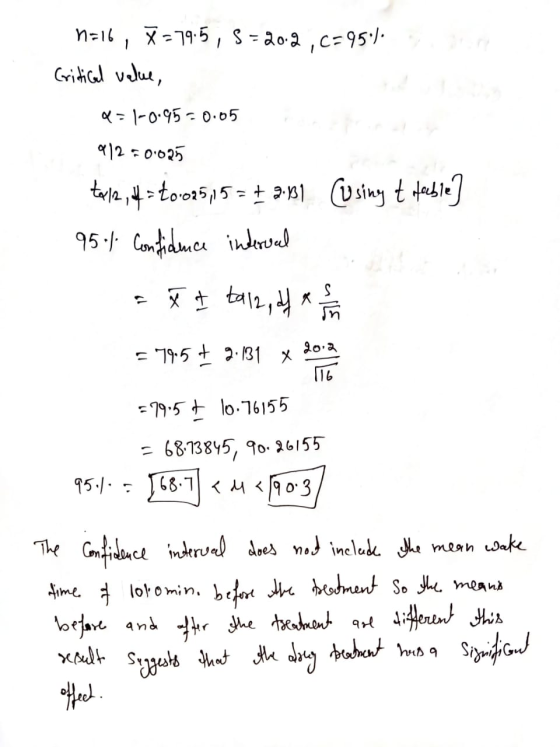 n=16, x̄=79.5, S=20.2, C=95%
Critical value,
α = 1-0.95 = 0.05
α/2 = 0.025
tα/2, df = t0.025,15 = ± 2.131 (Using t table]
95% Confidence interval
= x̄ ± tα/2, df × S/√n
= 79.5 ± 2.131 × 20.2/√16
= 79.5 ± 10.76155
= 68.73845, 90.26155
95% = 68.7 < μ < 90.3
The Confidence interval does not include the mean wake
time of 101.0 min. before the treatment So the means
before and after the treatment are different this
result Suggests that the drug treatment has a Significant
effect.